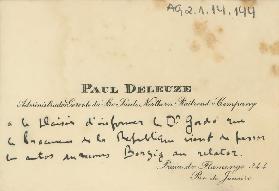 AG2.1.14.144
PAUL DELEUZE
Administrador Gerente da São Paulo Northern Railroad Company
a le plaisir d'informer le Dr Gordo que
le Procureur de la République vient de passer
les autos au nouveau Borgia au relator.
Praia do Flamengo 244
Rio de Janeiro